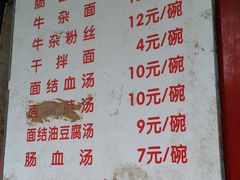 肠 面
牛杂面 12元/碗
牛杂粉丝 12元/碗
干拌面 4元/碗
面结血汤 10元/碗
面 汤 10元/碗
面结油豆腐汤 9元/碗
肠血汤 7元/碗